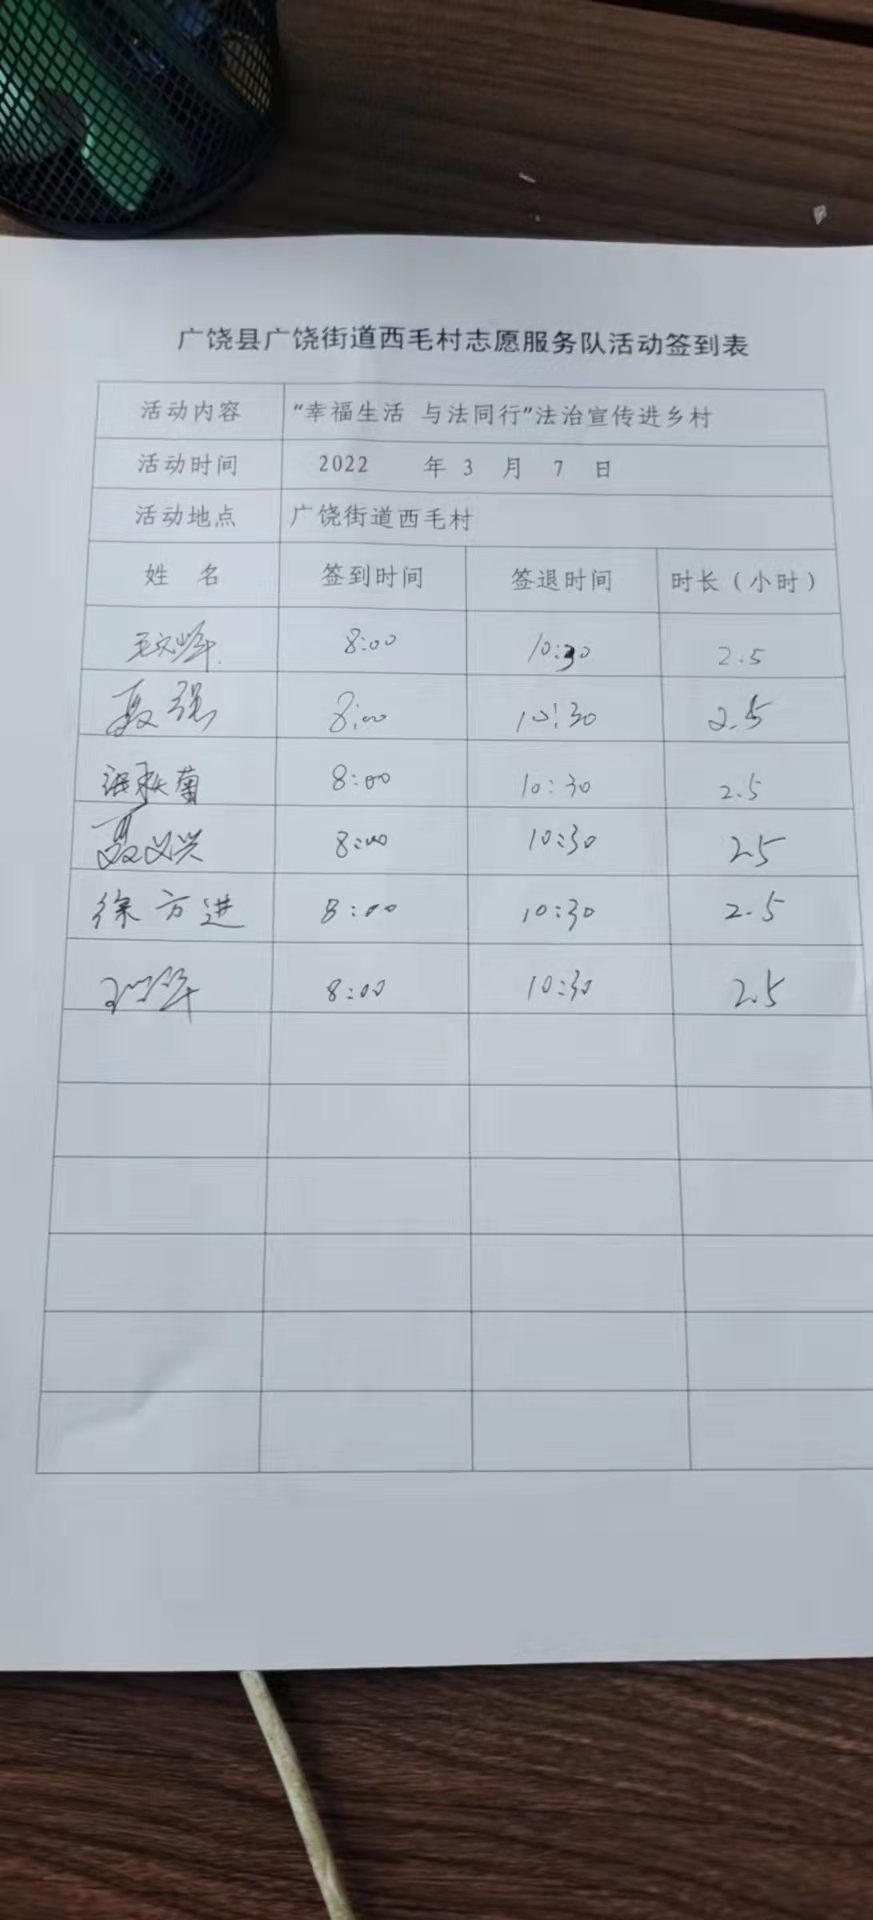 广饶县广饶街道西毛村志愿服务队活动签到表
活动内容 “幸福生活 与法同行”法治宣传进乡村
活动时间 2022 年 3 月 7 日
活动地点 广饶街道西毛村
姓 名 签到时间 签退时间 时长（小时）
8:00 10:30 2.5
聂强 8:00 10:30 2.5
8:00 10:30 2.5
聂义兴 8:00 10:30 2.5
徐方进 8:00 10:30 2.5
8:00 10:30 2.5